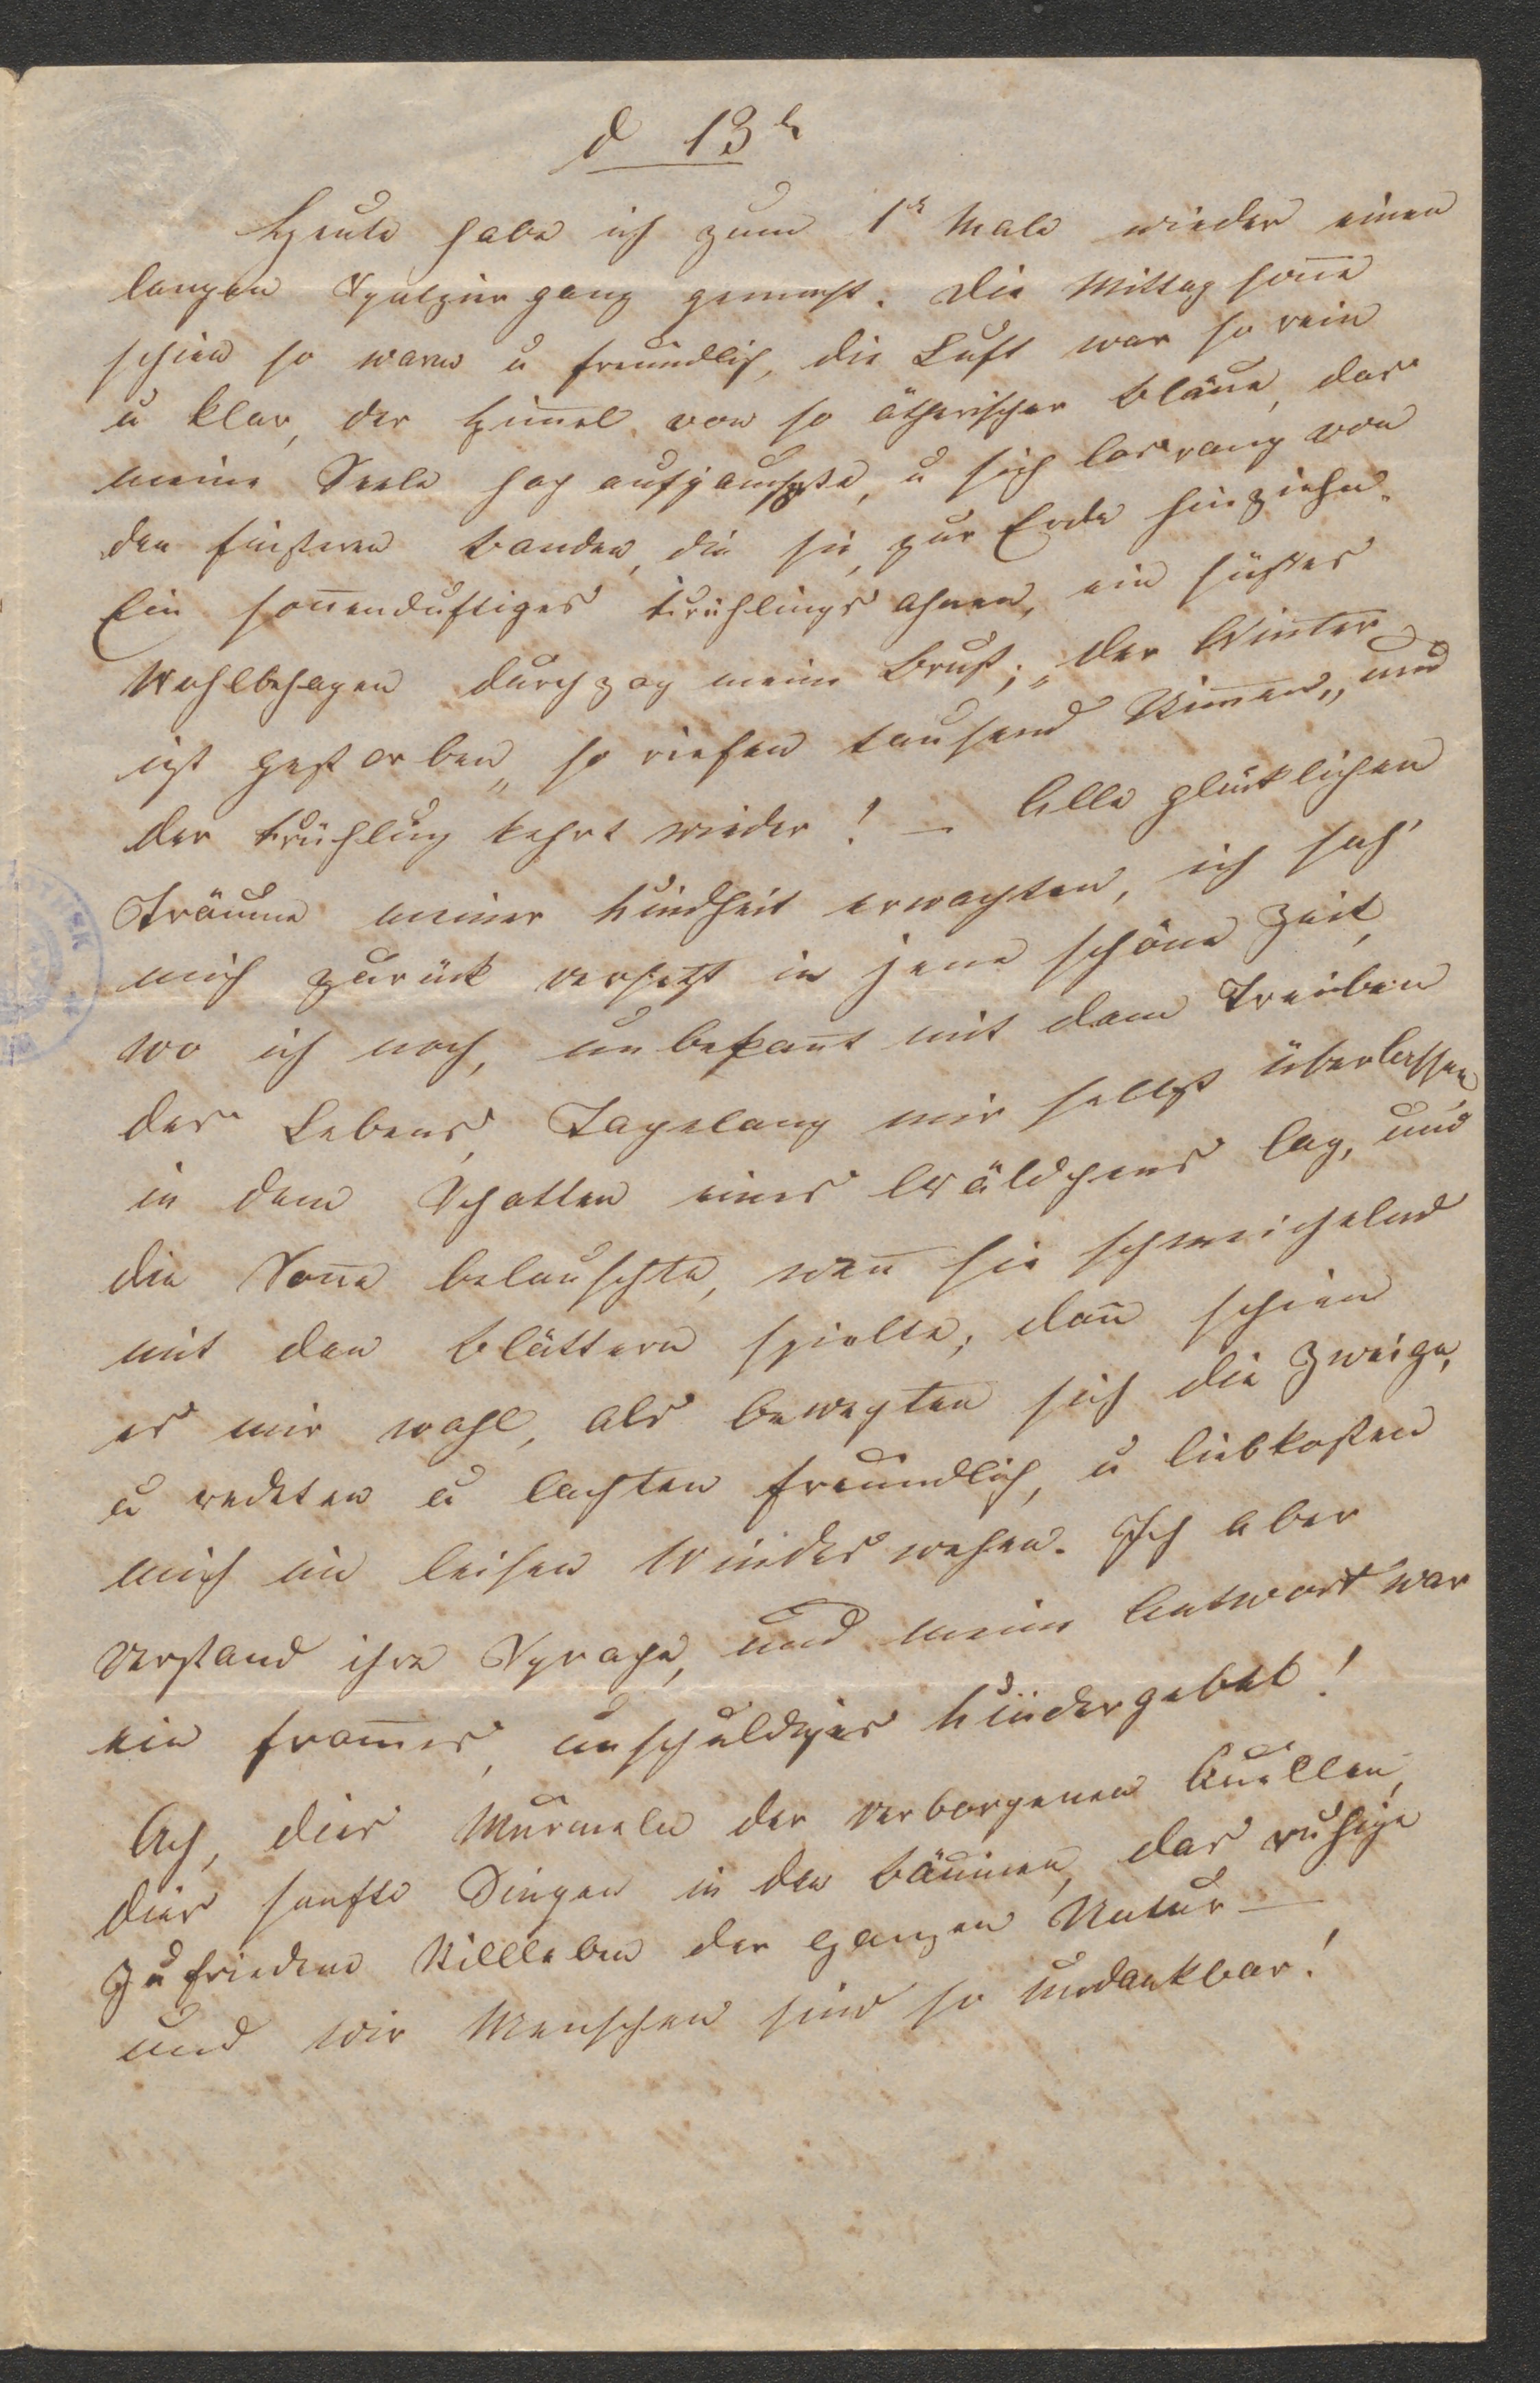 d 13t
Heute habe ich zum 1t Male wieder einen
langen Spatziergang gemacht. Die Mittag soñe
schien so warm u freundlich, die Luft war so rein
u klar, der Him̄el von so ätherischer Bläue, das
meine Seele hoch aufjauchzte, u sich losrang von
den finsteren Banden, die sie zur Erde hinziehn.
Ein soñenduftiges Frühlings ahnen, ein süßes
Wohlbehagen durchzog meine Brust; „der Winter
ist gestorben„ so riefen tausend Stim̄en, „und
der Frühling kehrt wieder! — Alle glücklichen
Träume meiner Kindheit erwachten, ich sah'
mich zurück versetzt in jene schöne Zeit,
wo ich noch, unbekañt mit dem Treiben
des Lebens, Tagelang mir selbst überlassen
in dem Schatten eines Wäldchens lag, und
die Soñe belauschte, weñ sie schmeichelnd
mit den Blättern spielte; dañ schien
es mir wohl, als bewegten sich die Zweige,
u redeten u lachten freundlich, u liebkosten
mich im leisen Windes wehen. Ich aber
verstand ihre Sprache, und meine Antwort war
ein from̄es, unschuldiges Kindergebet!
Ach, dies Murmeln der verborgenen Quellen,
dies sanfte Singen in den Bäumen, das ruhige
zufriedene Stillleben der ganzen Natur —
und wir Menschen sind so undankbar!